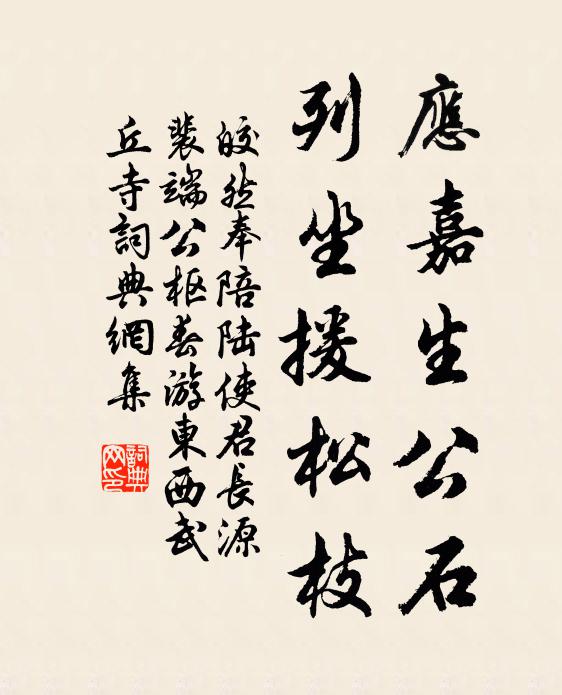 應嘉生公石
列坐援松枝
皎然奉陪陸使君長源
裴端公枢春游東西武
丘寺詞典網集
詞典网印